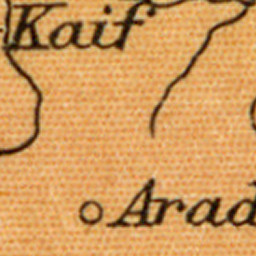 Kaif
Arad